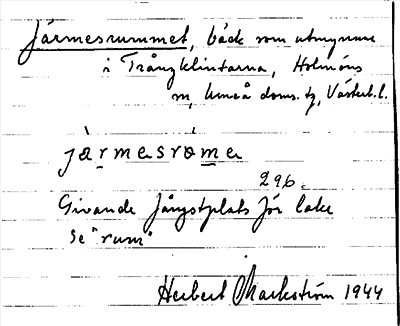 Järmesrummet, bäck som utmynnar
i Trångklintarna, Holmöns
sn, Umeå doms. tg, Västerb. l.
järmesrøme
296.
Givande fångstplats för lake
Se "rum"
Herbert Markström 1944